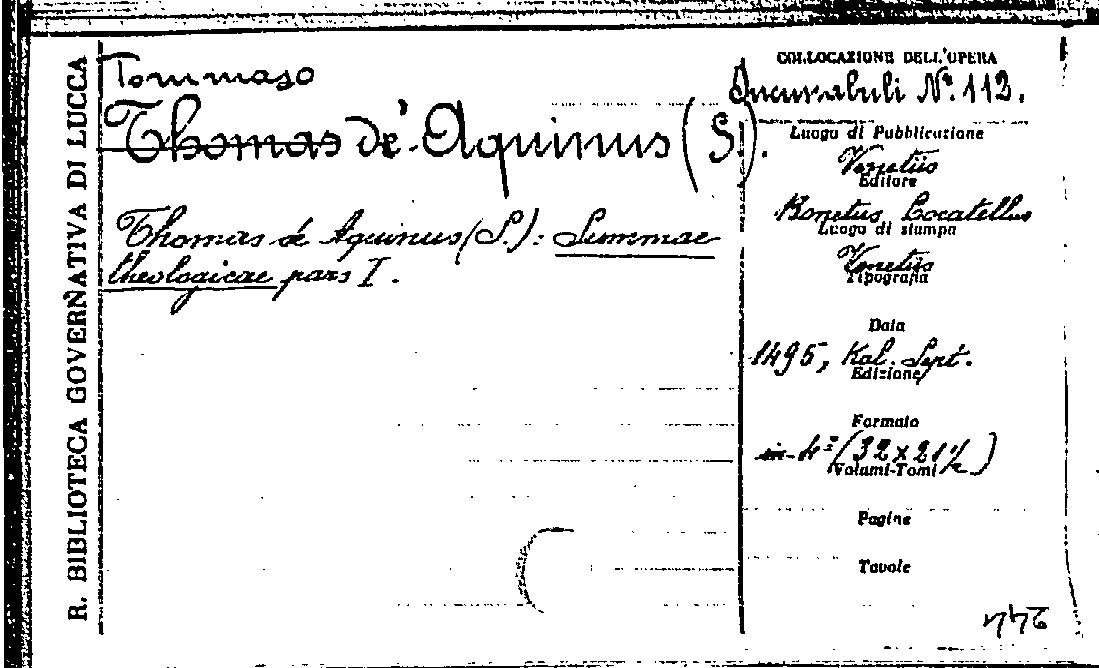 R. BIBLIOTECA GOVERNATIVA DI LUCCA
Tommaso
Thomas de' Aquinus (S).
Thomas de Aquinus (S.): Summae
theologicae pars I.
COLLOCAZIONE DELL'OPERA
Incunabuli Nº. 112.
Luogo di Pubblicazione
Venetiis
Editore
Bonetus Locatellus
Luogo di stampa
Venetiis
Tipografia
Data
1495, Kal. Sept.
Edizione
Formato
in-4º (32 x 21½)
Volumi-Tomi
Pagine
Tavole